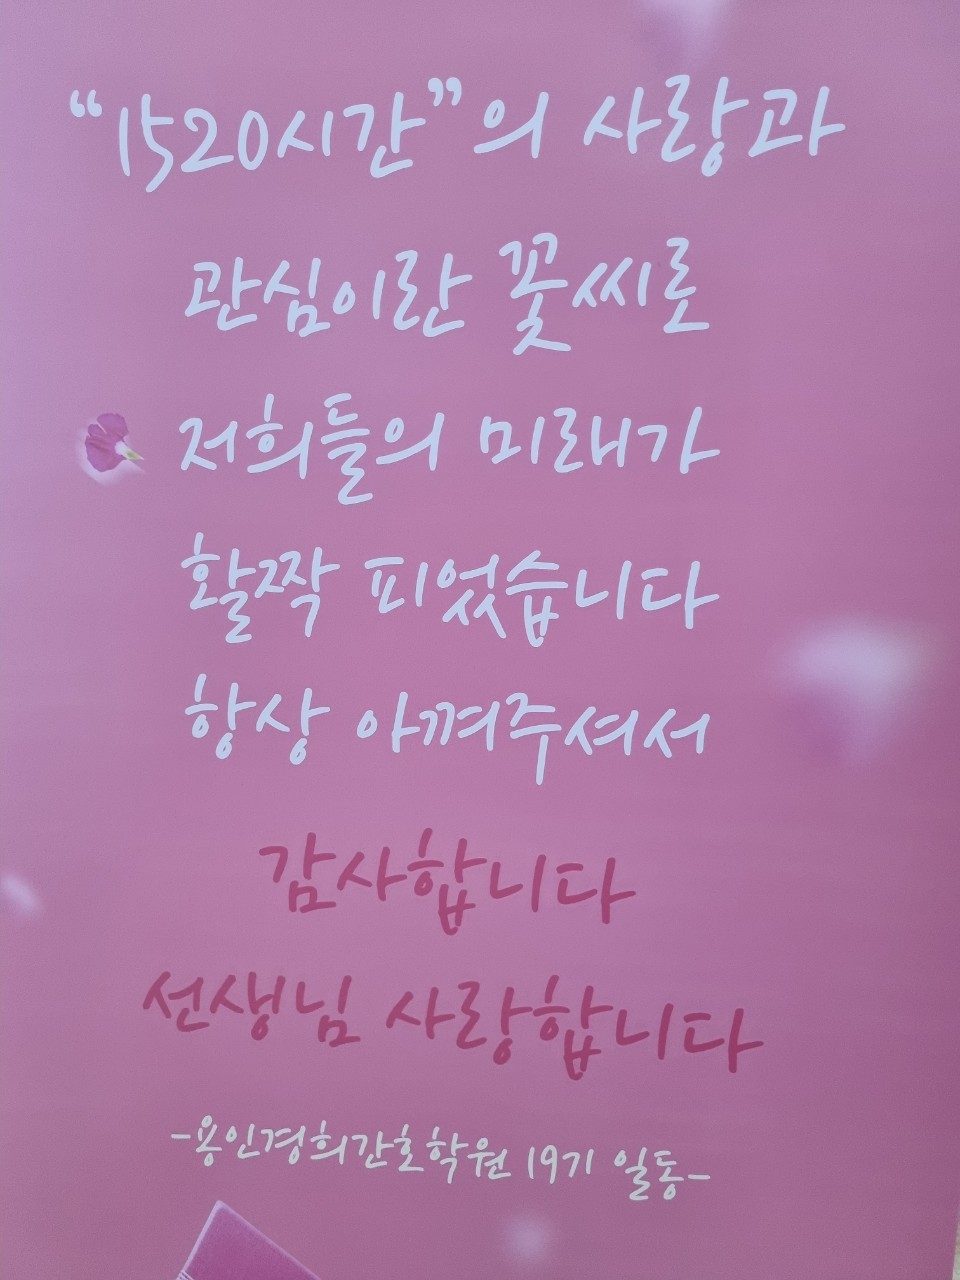 “1520시간”의 사랑과
관심이란 꽃씨로
저희들의 미래가
활짝 피었습니다
항상 아껴주셔서
감사합니다
선생님 사랑합니다
-용인경희간호학원 19기 일동-